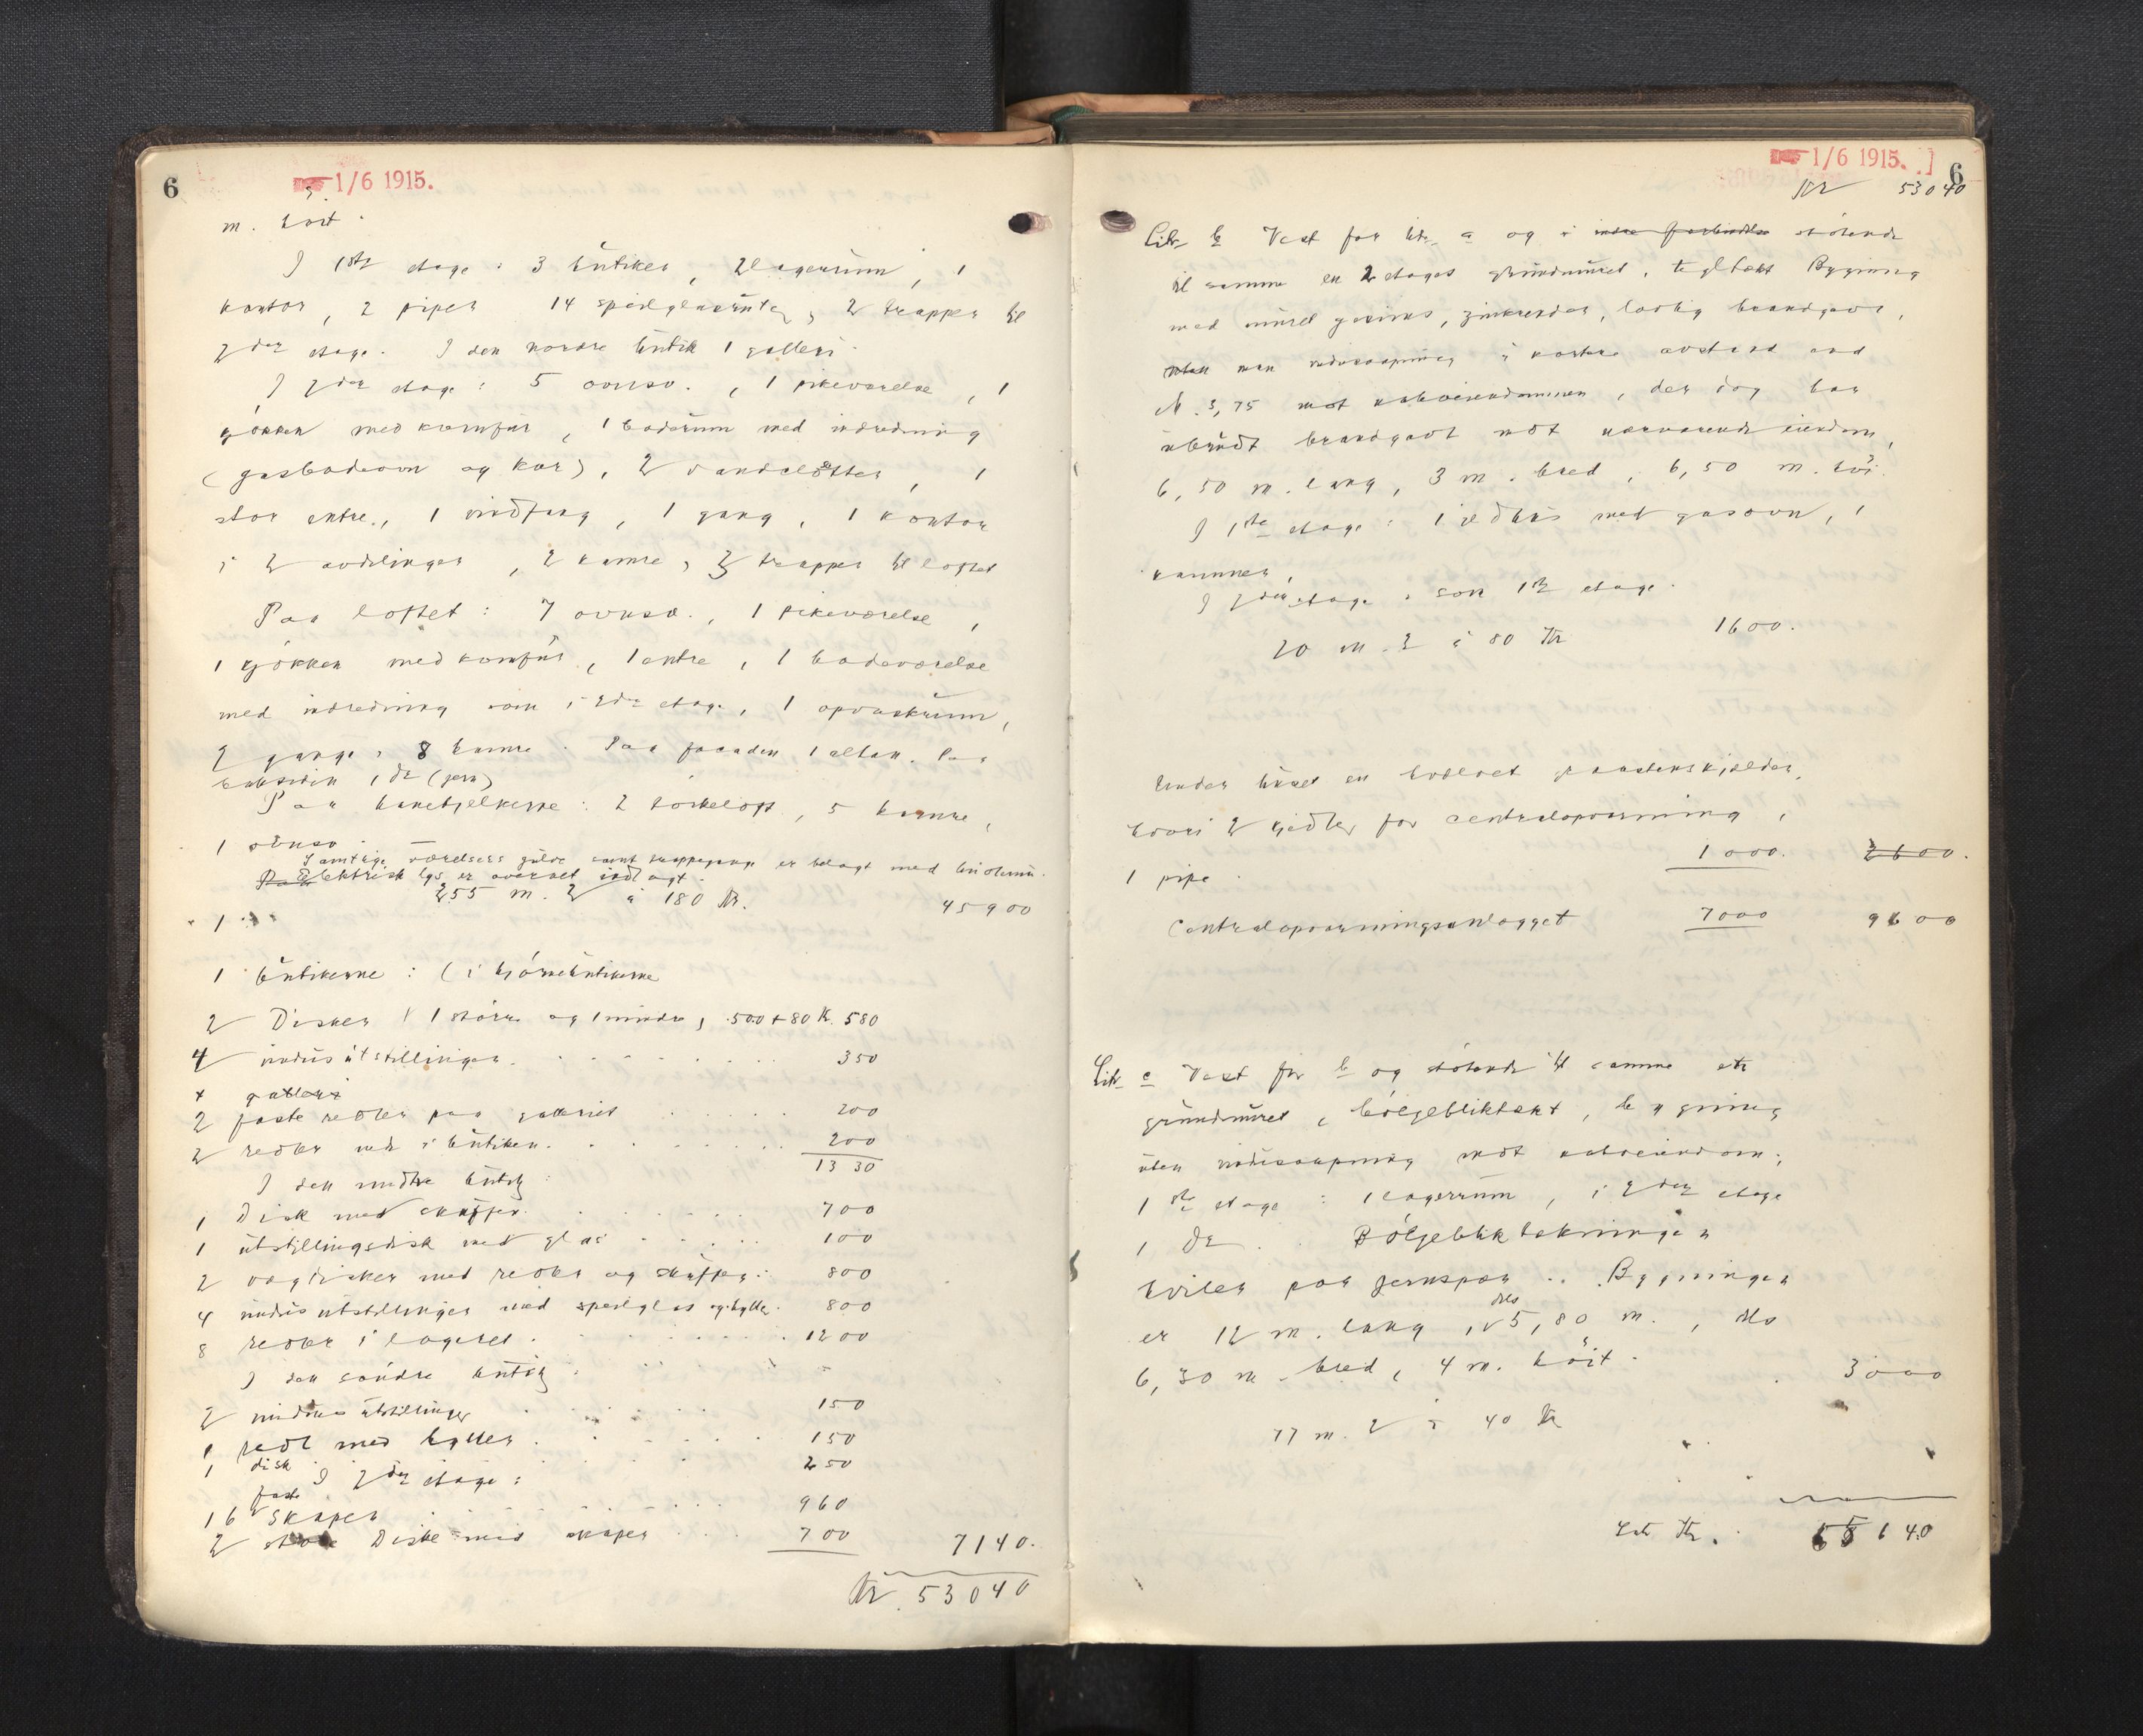 6
1/6 1915.
m. höit.
I 1ste etage: 3 butiker, 2 lagerrum, 1
kontor, 2 piper 14 speilglasruter, 2 trapper til
2den etage. I den nordre butik 1 galleri.
I 2den etage: 5 ovnsv., 1 pikeværelse, 1
kjøkken med komfur, 1 baderum med indredning
(gasbadeovn og kar), 2 vandclosetter, 1
stor entre, 1 vindfang, 1 gang, 1 kontor
i 2 avdelinger, 2 kamre, 2 trapper til loftet
Paa loftet: 7 ovnsv., 1 pikeværelse,
1 kjøkken med komfur, 1 entre, 1 badeværelse
med indredning som i 2den etage, 1 opvaskrum,
2 gange, 8 kamre. Paa facaden 1 altan. Paa
baksiden 1 do (jern)
Paa hanebjelkerne: 2 tørkeloft, 5 kamre,
1 ovnsv.
Samtlige værelsers gulve samt trappegange er belagt med linoleum.
Elektrisk lys er overalt indlagt.
255 m. 2 à 180 Kr. 45900
1
I butikerne: (i hjørnebutikerne
2 Disker (1 større og 1 mindre) 500 + 80 Kr. 580
4 vindusutstillinger. 350
+ galleri
2 faste reoler paa galleriet 200
2 reoler nede i butiken. 200
1330
I den midtre butik:
1 Disk med skuffer. 700
1 utstillingsdisk med glas 100
2 vegdisker med reoler og skuffer: 800
4 vindusutstillinger med speilglas og hylle. 800
8 reoler i lageret. 1200
I den søndre butik:
2 vindusutstillinger 150
1 reol med hyller. 150
1 disk 250
I 2den etage:
16 faste skaper 960
2 store Diske med skaper 700 7140.
Kr. 53040
1/6 1915.
6
Kr 53040
Litr b Vest for litr. a og i indre forbindelse støtende
til samme en 2 etages grundmuret, teglhækt Bygning
med muret gesims, zinkrender, lovlig brandgavl,
uten men vindusaapning i kortere avstand end
M. 3,75 mot naboeiendommen, der dog har
ubrudt brandgavl mot nærværende eiendom,
6,50 m. lang, 3 m. bred, 6,50 m. høi.
I 1ste etage: 1 ildhus med gasovn, 1
kammer,
I 2den etage: som 1ste etage.
20 m. 2 à 80 Kr 1600.
Under huset en hvælvet graastenskjelder,
hvori 2 kjedler for centralopvarming,
1 pipe. 1000. 2600.
Centralopvarmingsanlægget 7000 9600
Litr c Vest for b og støtende til samme en
grundmuret, bølgebliktækt, bygning
uten vindusaapning mot naboeiendom;
1ste etage: 1 lagerrum, i 2den etage
1 do. Bølgebliktækningen
hviler paa jernspær. Bygningen
er 12 m. lang, dels 5,80 m., dels
6,30 m. bred, 4 m. høit. 3000
77 m. 2 à 40 Kr
Litr Kr. 65640